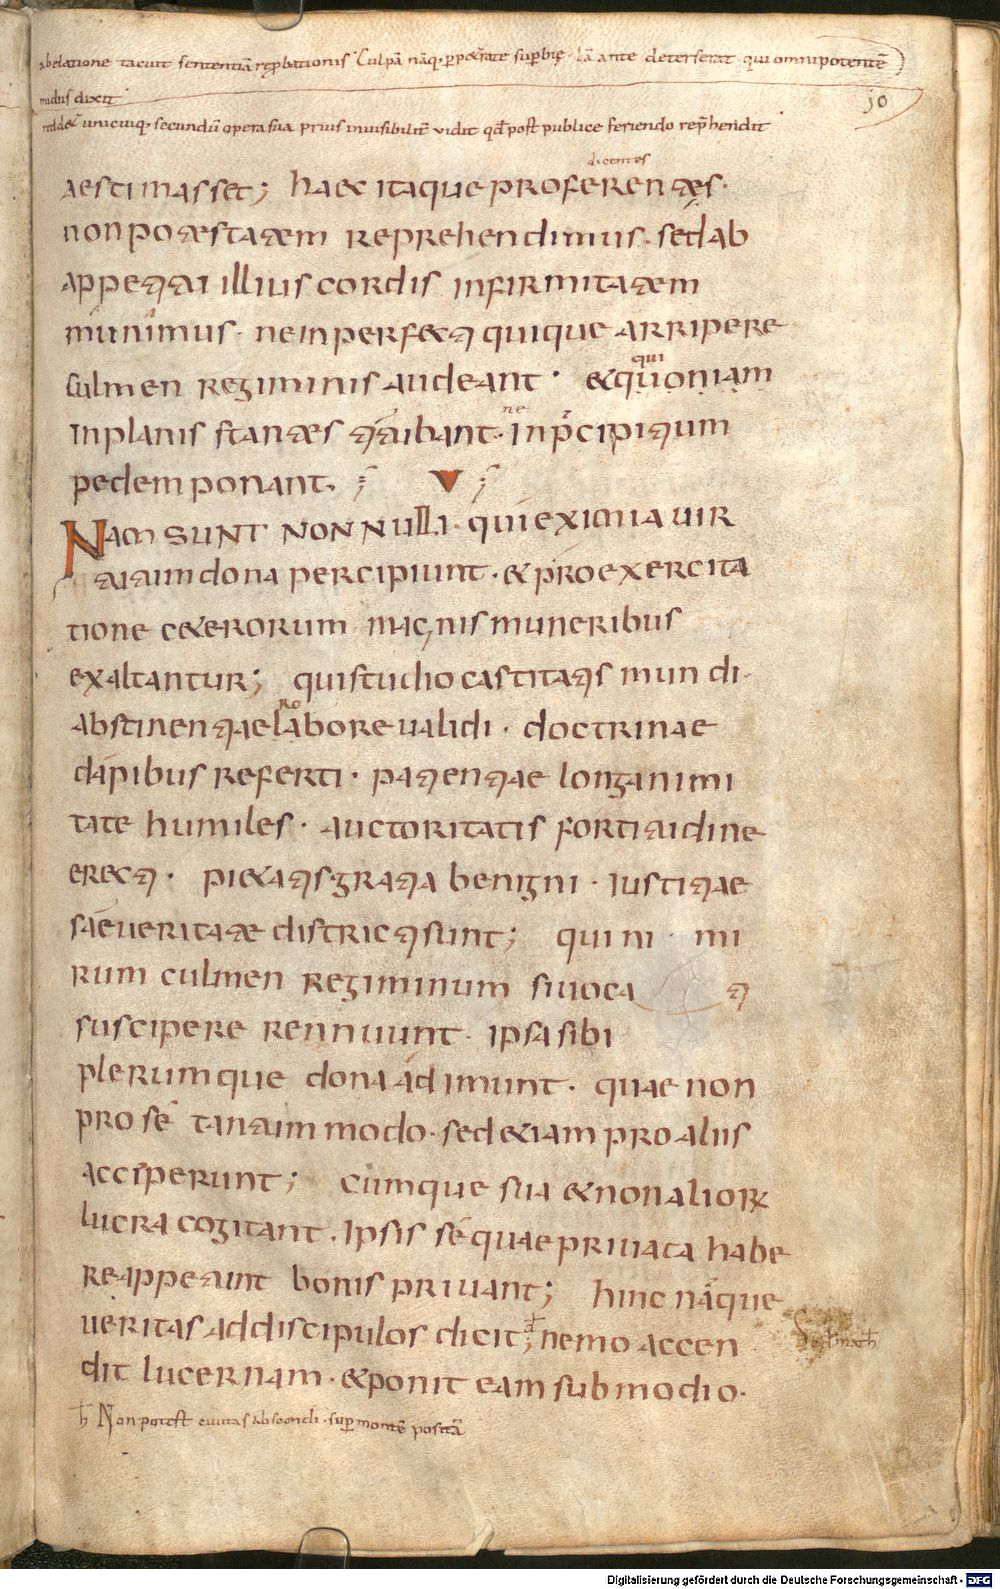 abelatione tacuit sententiā rep̄bationis. Culpā nāq; ppetrate supbię. Iā ante deterserat. qui omnipotentē
nudus dixit
10
reddet unicuiq; secundū opera sua prius inuisibilit̄ vidit qd̄ post publice feriendo rep̄hendit
dicentes
aestimasset; haec itaque proferentes.
non potestatem reprehendimus. sed ab
appetitu illius cordis infirmitatem
munimus. ne inperfecti quique arripere
culmen regiminis audeant. &quoniam
qui
in planis stantes titubant. in p̄cipitium
ne
pedem ponant. V
Nam sunt nonnulli. qui eximia uir
tutum dona percipiunt. & pro exercita
tione ceterorum magnis muneribus
exaltantur; qui studio castitatis mundi.
abstinentiae labore ualidi. doctrinae
ro
dapibus referti. patientiae longanimi
tate humiles. auctoritatis fortitudine
erecti. pietatis gratia benigni. iustitiae
saeueritate districti sunt; qui ni mi
rum culmen regiminum si uoca ti
suscipere rennuunt. ipsa sibi
plerumque dona adimunt. quae non
pro se tantummodo. sed etiam pro aliis
acciperunt; cumque sua & non aliorꝝ
lucra cogitant. Ipsis se quae priuata habe
re appetunt bonis priuant; hinc namque
ueritas ad discipulos dicit; nemo accen
dit lucernam. & ponit eam sub modio.
h̄ Non potest ciuitas abscondi. sup montē positā